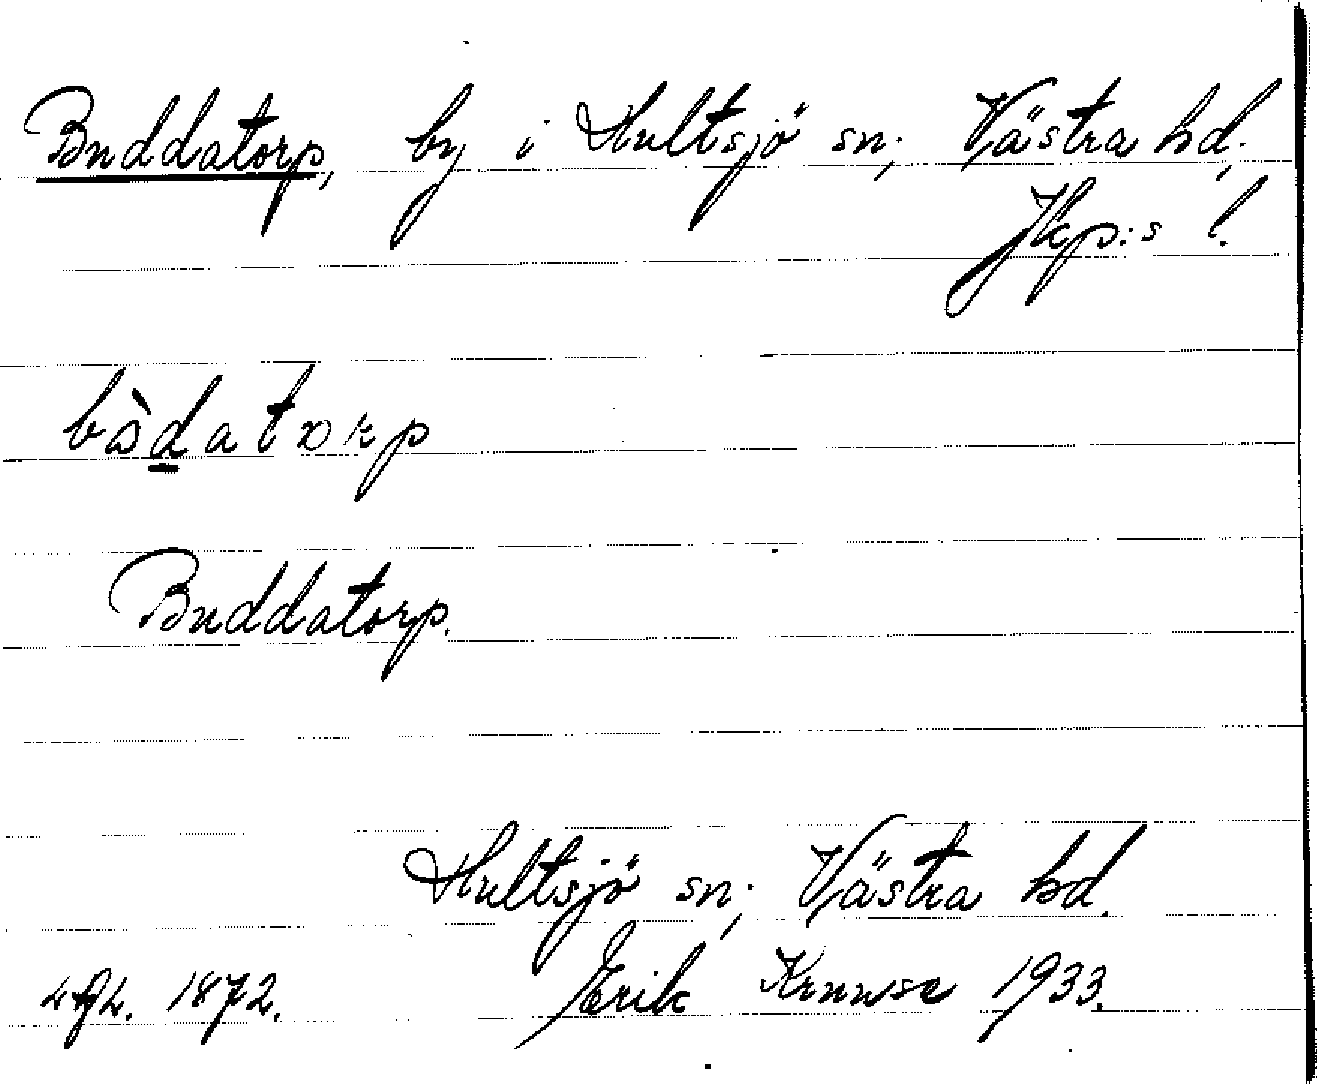 Buddatorp, by i Hultsjö sn; Västra hd,
Jkp:s l.
Buddatorp.
Hultsjö sn; Västra hd.
1872. Erik Kruuse 1933.